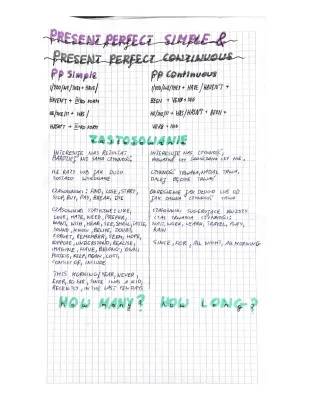 PRESENT PERFECT SIMPLE &
PRESENT PERFECT CONTINUOUS
PP Simple
I/YOU/WE/THEY + HAVE/
HAVEN'T + III FORM
HE/SHE/IT + HAS/
HASN'T + III FORM
PP Continuous
I/YOU/WE/THEY + HAVE/HAVEN'T +
BEEN + VERB + ING
HE/SHE/IT + HAS/HASN'T + BEEN +
VERB + ING
ZASTOSOWANIE
INTERESUJE NAS REZULTAT
BARDZIEJ NIŻ SAMA CZYNNOŚĆ
INTERESUJE NAS CZYNNOŚĆ,
ILE RAZY LUB JAK DUŻO
CZYNNOŚĆ TRWAŁA, NADAL TRWA,
CZASOWNIKI: FIND, LOSE, START,
STOP, BUY, PAY, BREAK, DIE
OKREŚLENIE JAK DŁUGO LUB OD
CZASOWNIKI STATYCZNE: LIKE,
LOVE, HATE, NEED, PREFER,
WANT, WISH, HEAR, SEE, SMELL, TASTE,
SOUND, KNOW, BELIEVE, DOUBT,
FORGET, REMEMBER, SEEM, HOPE,
SUPPOSE, UNDERSTAND, REALISE,
IMAGINE, HAVE, BELONG, OWN,
POSSESS, KEEP, MEAN, COST,
CONSIST OF, INCLUDE
WAIT, WORK, LEARN, TRAVEL, PLAY,
RAIN
SINCE, FOR, ALL NIGHT, ALL MORNING
THIS MORNING/YEAR, NEVER,
EVER, SO FAR, SINCE I WAS A KID,
RECENTLY, IN THE LAST FEW DAYS
HOW MANY?
HOW LONG?